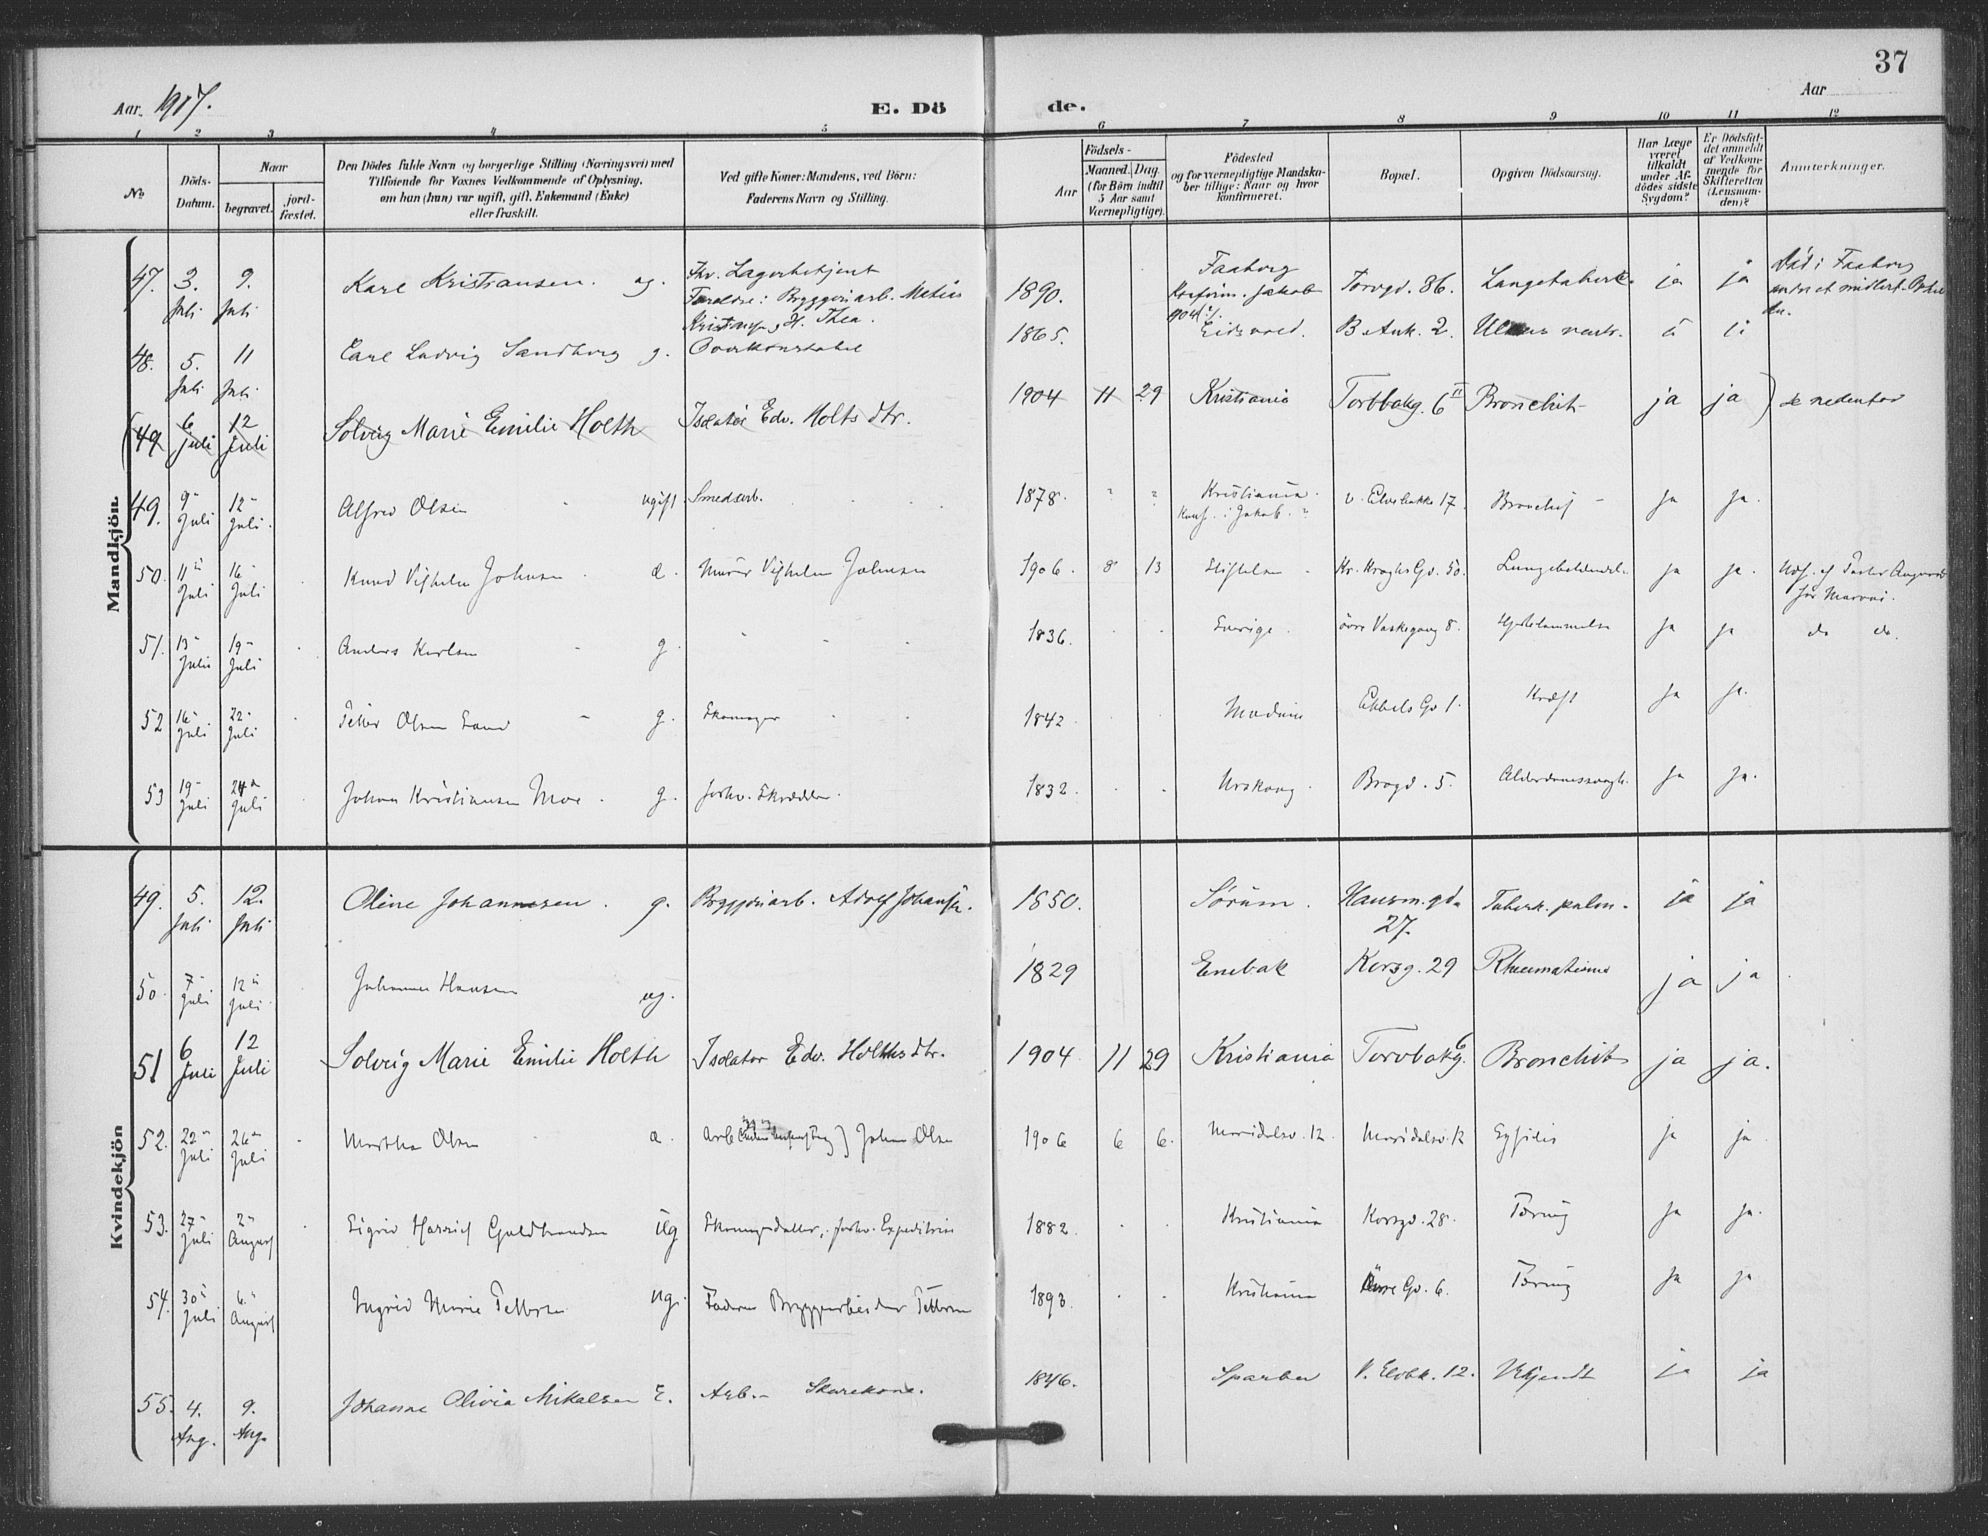 37
Aar 1907.
E. Dö
de.
Aar
1 2 3 4 5 6 7 8 9 10 11 12
No.
Döds-Datum.
Naar
begravet.
jord-fæstet.
Den Dödes fulde Navn og borgerlige Stilling (Næringsvei) med
Tilföiende for Voxnes Vedkommende af Oplysning,
om han (hun) var ugift, gift, Enkemand (Enke)
eller fraskilt.
Ved gifte Koner: Mandens, ved Börn:
Faderens Navn og Stilling.
Aar
Födsels-
Maaned. Dag.
(for Börn indtil
5 Aar samt
Værnepligtige).
Födested
og for værnepligtige Mandska-
ber tillige: Naar og hvor
konfirmeret.
Bopæl.
Opgiven Dödsaarsag.
Har Læge
været
tilkaldt
under Af-
dödes sidste
Sygdom?
Er Dödsfal-
det anmeldt
af Vedkom-
mende for
Skifteretten
(Lensman-
den)?
Anmærkninger.
Mandkjön
47. 3. Juli 9. Juli Karl Kristiansen. ug. Fhv. Lagerbetjent
Foreldre: Bryggeriarb. Matias
H. Thea.
1890. Faaborg
Konfirm. Jakob
Torvgd. 86. ja ja Död i Faaborg
48. 5. Juli 11 Juli Carl Ludvig Sandborg g. Overkonstabel 1865. Eidsvold. B. Ank. 2.
(49 6 Juli 12 Juli Solveig Marie Emilie Holth Isolatör Edv. Holts dtr. 1904 11 29 Kristiania Torvbakg. 6 II Bronchit ja ja ) se nedenfor
49. 9 Juli 12 Juli. Alfred Olsen ugift Smedarb. 1878. Kristiania.
Konf. i Jakob. v. Elvebakke 17. Bronchit ja ja.
50. 11 Juli 16 Juli Knud Vilhelm Johnsen Murer Vilhelm Johnsen 1906. 8 13 Stiftelsen Kr. Kroghs Gd. 50. ja ja.
51. 13 Juli 19 Juli Anders Karlsen g. 1836. Sverige. övre Vaskegang 8. Hjertelammelse ja ja do do.
52 16 Juli 22 Juli Petter Olsen g. Skomager 1842 Modum Gd 1. Kræft ja ja.
53 19 Juli 24 Juli Johan Kristiansen Moe. g. forhv. Skrædder. 1832. Urskoug Brogd. 5. Alderdomssvagh. ja ja.
Kvindekjön
49. 5. Juli 12. Juli Oline Johannesen. g. Bryggeriarb. Adolf Johansen. 1850. Sörum. Hausm. gd.
27. Tuberk. pulm. ja ja
50. 7 Juli 12 Juli. Johanne Hansen ug. 1829 Enebak Korsg. 29 Rheumatisme ja ja
51 6 Juli 12 Juli Solveig Marie Emilie Holth Isolatör Edv. Holths dtr. 1904 11 29 Kristiania Torvbakg. 6 Bronchit ja ja.
52. 22 Juli 26 Juli Martha Olsen Arb. Johan Olsen 1906 6 6. Maridalsv. 12. Maridalsv. 12 Syfilis ja ja
53. 27 Juli 2 August Sigrid Guldbrandsen ug forhv. Expeditrice 1882. Kristiania Korsgd. 28. Tæring ja ja.
54. 30 Juli 6 August Ingrid Marie Pettersen ug. Faderen Bryggearbeider Pettersen 1893. Kristiania Gd. 6. Tæring ja ja
55. 4. Aug. 9. Aug. Johanne Olivia Mikalsen E. Arb. Skurekone. 1846. Sparbu V. Elvbk. 12. Ukjendt ja ja